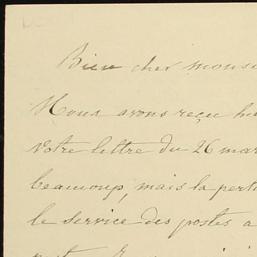 Bien cher monsi
Nous avons reçu hie
votre lettre du 26 mar
beaucoup, mais la perte
le service des postes a